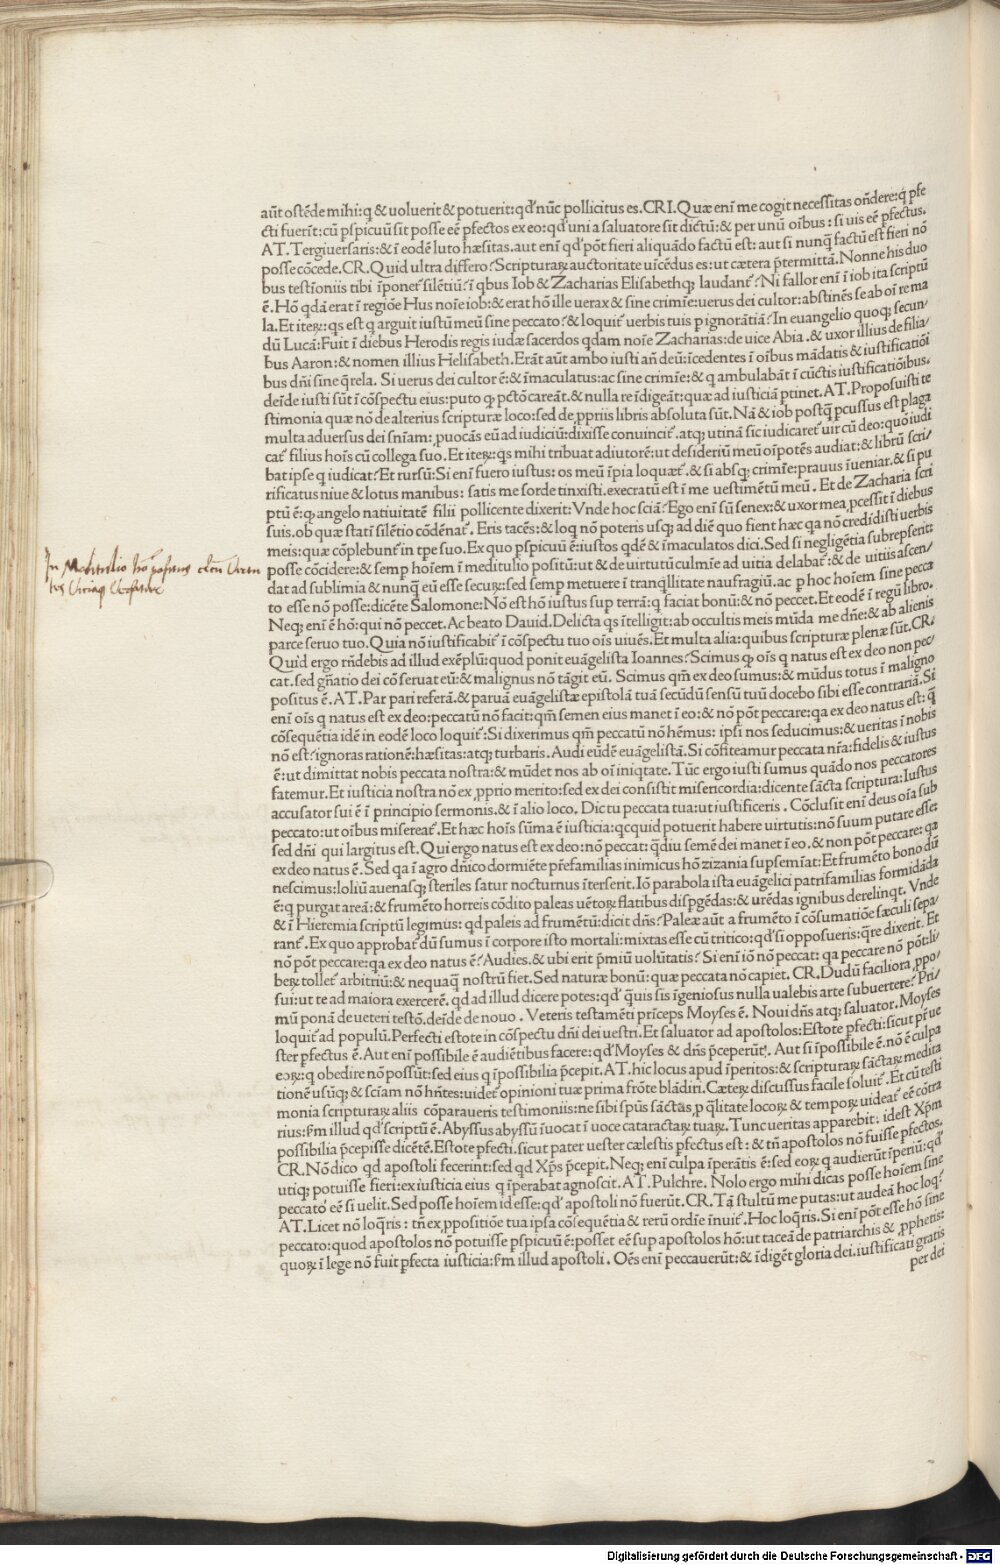 aūt ostēde mihi:q & uoluerit & potuerit:qd' nūc pollicitus es.CRI.Quæ enī me cogit necessitas oñdere:q pfe
cti fuerīt:cū pspicuū sit posse eē pfectos ex eo:qd' uni a saluatore sit dictū:& per unū oībus:si uis eē pfectus.
AT.Tergiuersaris:& ī eodē luto hæsitas.aut enī qd' pōt fieri aliquādo factū est:aut si nunq̄ factū est fieri nō
posse cōcede.CR.Quid ultra differo?Scripturaꝝ auctoritate uīcēdus es:ut cætera p̄termittā.Nonne his duo
bus testīoniis tibi īponet' silētiū?ī qbus Iob & Zacharias Elisabethq; laudant'?Ni fallor enī ī iob ita scriptū
ē.Hō qdā erat ī regiōe Hus noīe iob:& erat hō ille uerax & sine crimīe:uerus dei cultor:abstinēs se ab oī re ma
la.Et iteꝝ:qs est q arguit iustū meū sine peccato?& loquit' uerbis tuis p ignorātiā?In euangelio quoq; secun/
dū Lucā:Fuit ī diebus Herodis regis iudæ sacerdos qdam noīe Zacharias:de uice Abia.& uxor illius de filia/
bus Aaron:& nomen illius Helisabeth.Erāt aūt ambo iusti añ deū:īcedentes ī oībus mādatis & iustificatiōi
bus dñi sine q̄rela. Si uerus dei cultor ē:& īmaculatus:ac sine crimīe:& q ambulabāt ī cūctis iustificatiōibus.
deīde iusti sūt ī cōspectu eius:puto ꝙ pctō careāt.& nulla re īdigeāt:quæ ad iusticiā ptinet.AT.Proposuisti te
stimonia quæ nō de alterius scripturæ loco:sed de ꝓpriis libris absoluta sūt.Nā & iob postq̄ pcussus est plaga
multa aduersus dei sniam:ꝓuocās eū ad iudiciū:dixisse conuincit'.atq; utinā sic iudicaret' uir cū deo:quō iudi
cat' filius hoīs cū collega suo.Et iteꝝ:qs mihi tribuat adiutorē:ut desideriū meū oīpotēs audiat:& librū scri/
bat ipse q iudicat?Et rursū:Si enī fuero iustus:os meū īpia loquæt'.& si absq; crimīe:prauus īueniar.& si pu
rificatus niue & lotus manibus:satis me sorde tinxisti.execratū est ī me uestimētū meū.Et de Zacharia scri
ptū ē:ꝙ angelo natiuitatē filii pollicente dixerit:Vnde hoc sciā?Ego enī sū senex:& uxor mea ꝓcessit ī diebus
suis.ob quæ statī silētio cōdēnat'.Eris tacēs:& loq nō poteris usq; ad diē quo fient hæc qa nō credidisti uerbis
meis:quæ cōplebunt' in tpe suo.Ex quo pspicuū ē:iustos qdē & īmaculatos dici.Sed si negligētia subrepserit:
posse cōcidere:& semp hoīem ī meditulio positū:ut & de uirtutū culmīe ad uitia delabat':& de uitiis ascen/
dat ad sublimia & nunq̄ eū esse secuꝝ:sed semp metuere ī tranqllitate naufragiū.ac p hoc hoīem sine pecca
to esse nō posse:dicēte Salomone:Nō est hō iustus sup terrā:q faciat bonū:& nō peccet.Et eodē ī regū libro.
Neq; enī ē hō:qui nō peccet.Ac beato Dauid.Delicta qs ītelligit:ab occultis meis mūda me dñe:& ab alienis
parce seruo tuo.Quia nō iustificabit' ī cōspectu tuo oīs uiuēs.Et multa alia:quibus scripturæ plenæ sūt.CR.
Quid ergo rñdebis ad illud exēplū:quod ponit euāgelista Ioannes?Scimus ꝙ oīs q natus est ex deo non pec/
cat.sed gñatio dei cōseruat eū:& malignus nō tāgit eū. Scimus qm̄ ex deo sumus:& mūdus totus ī maligno
positus ē.AT.Par pari referā.& paruā euāgelistæ epistolā tuā secūdū sensū tuū docebo sibi esse contrariā.Si
enī oīs q natus est ex deo:peccatū nō facit:qm̄ semen eius manet ī eo:& nō pōt peccare:qa ex deo natus est:q̄
cōsequētia idē in eodē loco loquit':Si dixerimus qm̄ peccatū nō hēmus:ipsi nos seducimus:& ueritas ī nobis
nō est?ignoras rationē:hæsitas:atq; turbaris.Audi eūdē euāgelistā.Si cōfiteamur peccata nrā:fidelis & iustus
ē:ut dimittat nobis peccata nostra:& mūdet nos ab oī iniqtate.Tūc ergo iusti sumus quādo nos peccatores
fatemur.Et iusticia nostra nō ex ꝓprio merito:sed ex dei consistit misericordia:dicente sācta scriptura:Iustus
accusator sui ē ī principio sermonis.& ī alio loco. Dic tu peccata tua:ut iustificeris.Cōclusit enī deus oīa sub
peccato:ut oībus misereat'.Et hæc hoīs sūma ē iusticia:qcquid potuerit habere uirtutis:nō suum putare esse:
sed dñi qui largitus est.Qui ergo natus est ex deo:nō peccat:qdiu semē dei manet ī eo.& non pōt peccare:qa
ex deo natus ē.Sed qa ī agro dñico dormiēte p̄refamilias inimicus hō zizania supsemīat:Et frumēto bono dū
nescimus:loliū auenasq; steriles satur nocturnus īterserit.Iō parabola ista euāgelici patrifamilias formidāda
ē:q purgat areā:& frumēto horreis cōdito paleas uētoꝝ flatibus dispgēdas:& urēdas ignibus derelinqt.Vnde
& ī Hieremia scriptū legimus:qd paleis ad frumētū:dicit dñs?Paleæ aūt a frumēto ī cōsumatiōe sæculi sepa/
rant'.Ex quo approbat' dū sumus ī corpore isto mortali:mixtas esse cū tritico:qd' si opposueris:q̄re dixerit.Et
nō pōt peccare:qa ex deo natus ē?Audies.& ubi erit p̄miū uolūtatis?Si enī iō nō peccat:qa peccare nō pōt:li/
beꝝ tollet' arbitriū:& nequaq̄ nostrū fiet.Sed naturæ bonū:quæ peccata nō capiet.CR.Dudū faciliora ꝓpo/
sui:ut te ad maiora exercerē.qd ad illud dicere potes:qd' q̄uis sis īgeniosus nulla ualebis arte subuertere?Pri/
mū ponā de ueteri testō.deīde de nouo.Veteris testamēti prīceps Moyses ē.Noui dñs atq; saluator.Moyses
loquit' ad populū.Perfecti estote in cōspectu dñi dei uestri.Et saluator ad apostolos:Estote pfecti:sicut pr̄ ue
ster pfectus ē.Aut enī possibile ē audiētibus facere:qd' Moyses & dñs p̄ceperūt'.Aut si īpossibile ē.nō ē culpa
eoꝝ:q obedire nō possūt:sed eius q īpossibilia p̄cepit.AT.hic locus apud īperitos:& scripturaꝝ sāctaꝝ medita
tionē usūq; & sciam nō hñtes:uidet' opinioni tuæ prima frōte blādiri.Cæteꝝ discussus facile soluit'.Et cū testi
monia scripturaꝝ aliis cōparaueris testimoniis:ne sibi spūs sāctas ꝓ qlitate locoꝝ & tempoꝝ uideat' eē cōtra
rius:sm̄ illud qd' scriptū ē.Abyssus abyssū īuocat ī uoce cataractaꝝ tuaꝝ.Tunc ueritas apparebit:idest Xp̄m
possibilia p̄cepisse dicētē.Estote pfecti.sicut pater uester cælestis pfectus est:& tñ apostolos nō fuisse pfectos.
CR.Nō dico qd apostoli fecerint:sed qd Xp̄s p̄cepit.Neq; enī culpa īperātis ē:sed eoꝝ q audierūt īperiū:qd'
utiq; potuisse fieri:ex iusticia eius q īperabat agnoscit.AT.Pulchre. Nolo ergo mihi dicas posse hoīem sine
peccato eē si uelit.Sed posse hoīem id esse:qd' apostoli nō fuerūt.CR.Tā stultū me putas:ut audeā hoc loq?
AT.Licet nō loqris:tñ ex ꝓpositiōe tua ipsa cōsequētia & rerū ordīe īnuit'.Hoc loqris.Si enī pōt esse hō sine
peccato:quod apostolos nō potuisse pspicuū ē:posset eē sup apostolos hō:ut taceā de patriarchis & ꝓphetis:
quoꝝ ī lege nō fuit pfecta iusticia:sm̄ illud apostoli.Oēs enī peccauerūt:& īdigēt gloria dei.iustificati gratis
per dei
In Meditulio